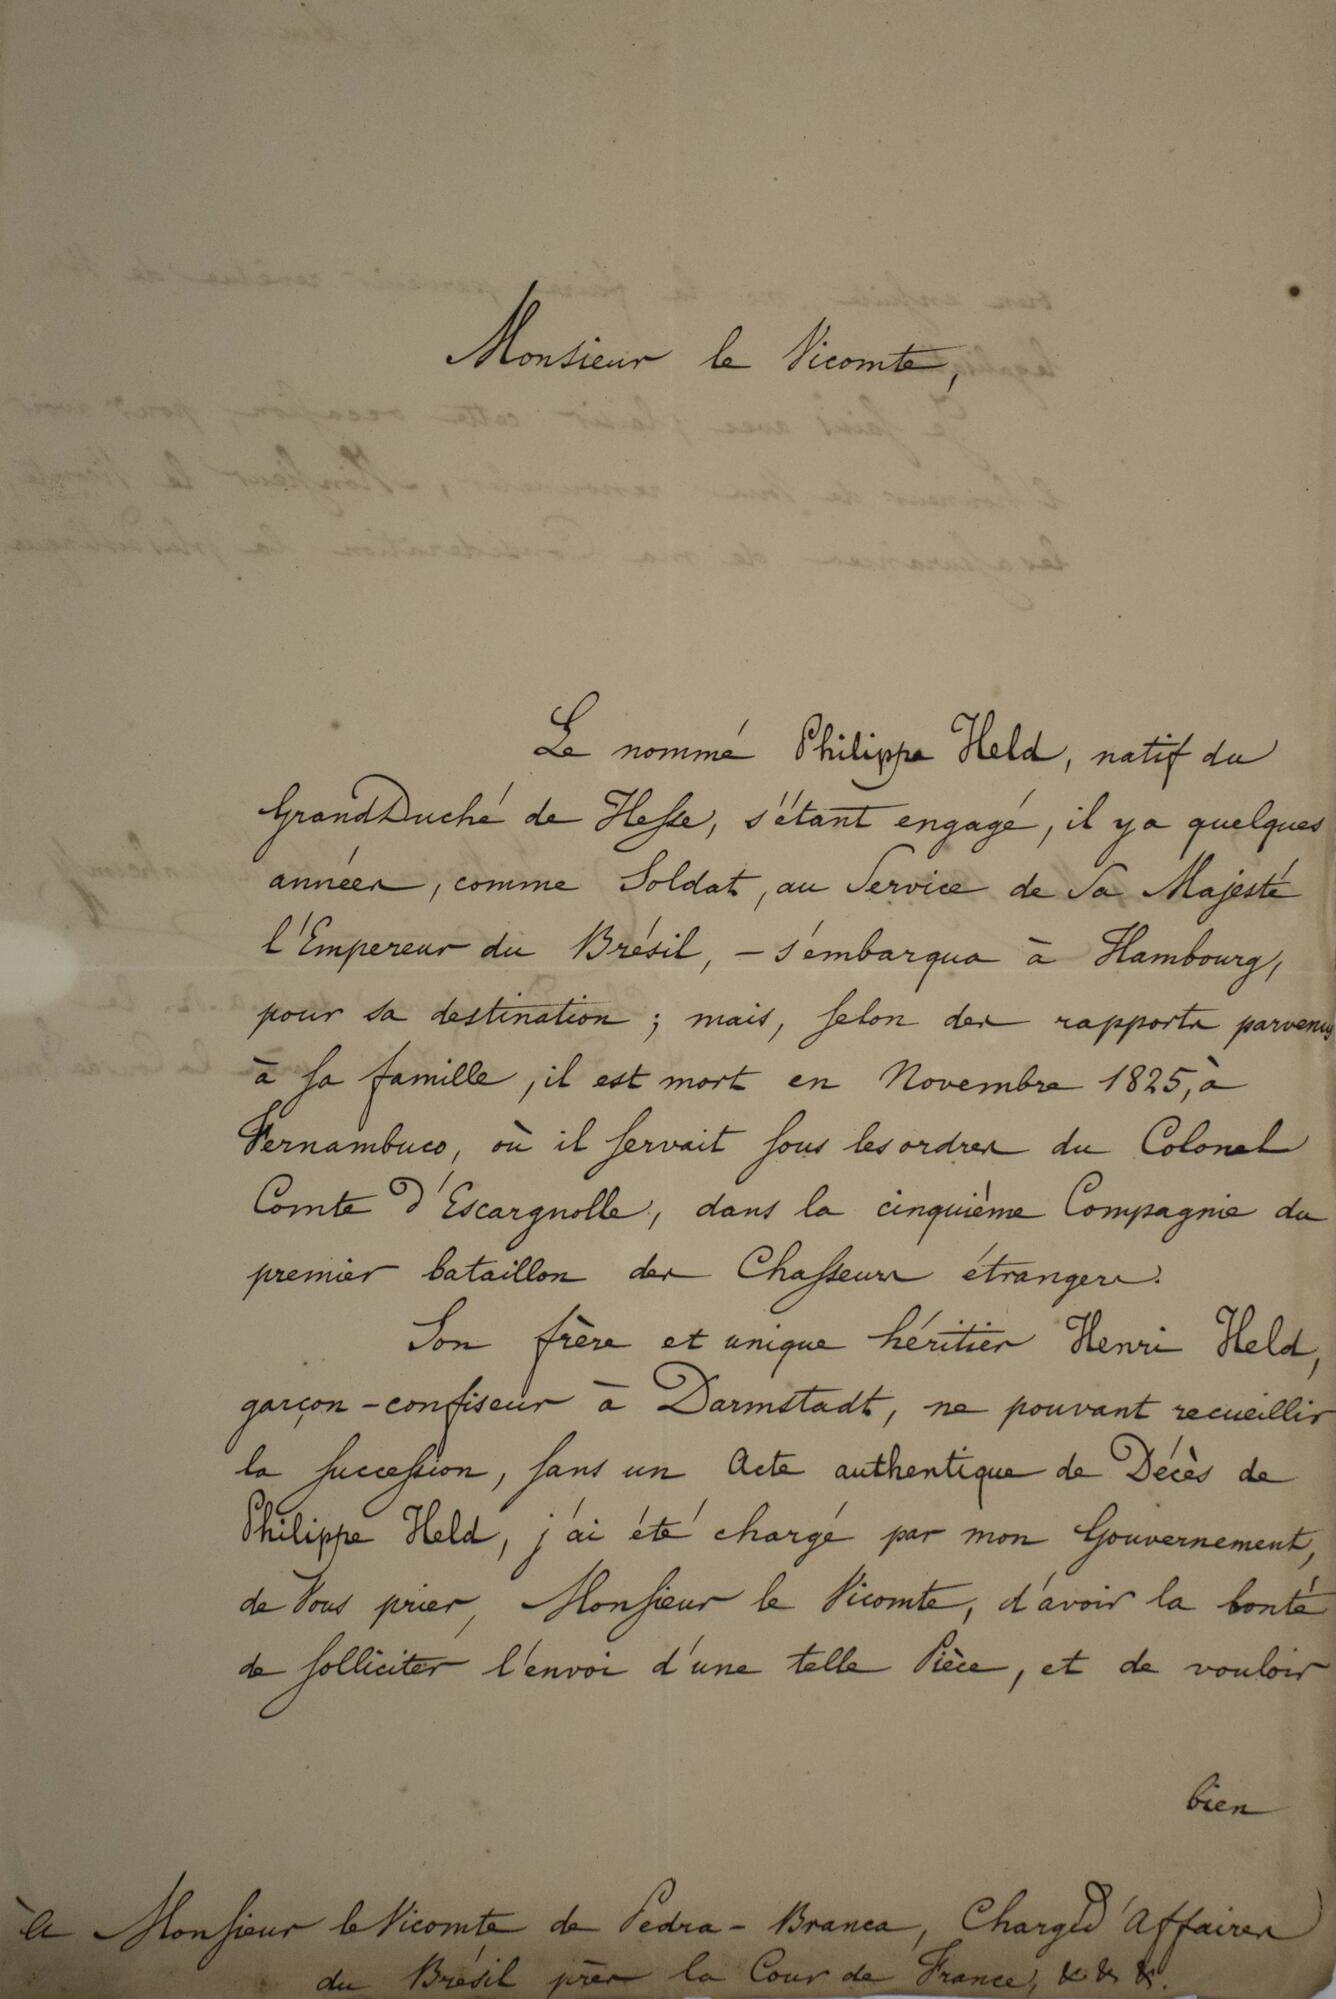 Monsieur le Vicomte,
Le nommé Philippe Held, natif du
Grand Duché de Hesse, s'étant engagé, il y a quelques
années, comme Soldat, au Service de Sa Majesté
l'Empereur du Brésil, – s'embarqua à Hambourg,
pour sa destination ; mais, selon des rapports parvenus
à sa famille, il est mort en Novembre 1825, à
Pernambuco, où il servait sous les ordres du Colonel
Comte d'Escargnolle, dans la cinquième Compagnie du
premier bataillon des Chasseurs étrangers.
Son frère et unique héritier Henri Held,
garçon-confiseur à Darmstadt, ne pouvant recueillir
la succession, sans un Acte authentique de Décès de
Philippe Held, j'ai été chargé par mon Gouvernement,
de Vous prier, Monsieur le Vicomte, d'avoir la bonté
de solliciter l'envoi d'une telle Pièce, et de vouloir
bien
à Monsieur le Vicomte de Pedra-Branca, Chargé d'Affaires
du Brésil près la Cour de France, & & &.